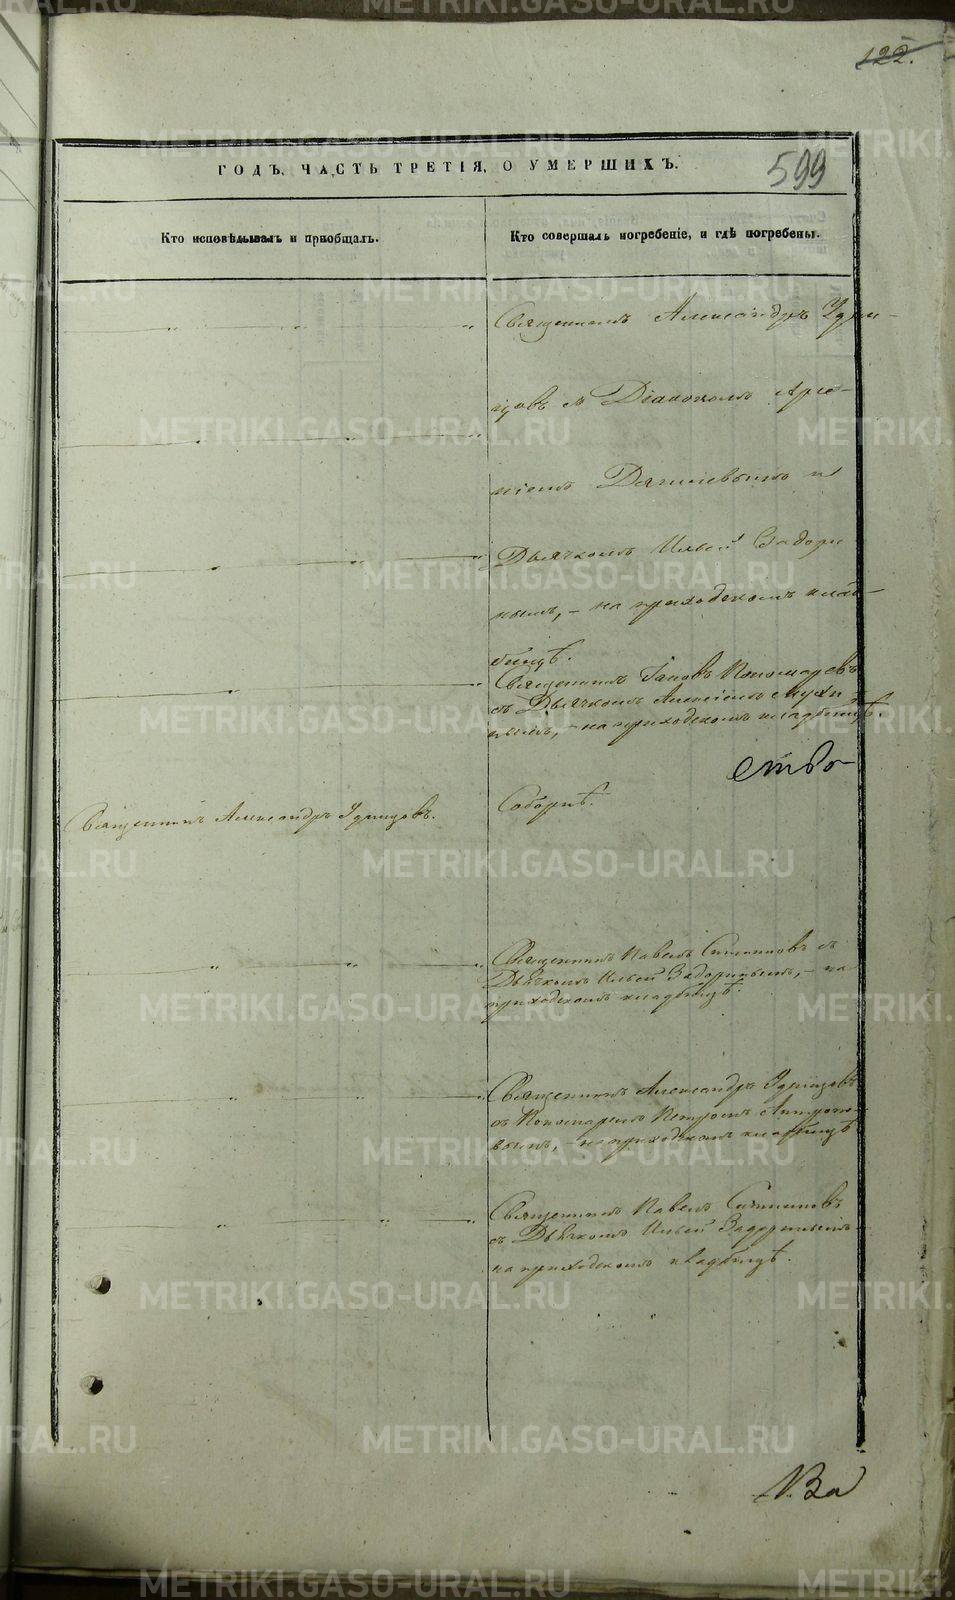 122.
ГОДЪ, ЧАСТЬ ТРЕТІЯ, О УМЕРШИХЪ.
599
Кто исповѣдывалъ и пріобщалъ.
Кто совершалъ погребеніе, и гдѣ погребены.
Священникъ Александръ Удин-
цовъ съ Діакономъ Арсе-
ніемъ и
Дьячкомъ Ильей Задори
нымъ, - на приходскомъ клад-
бищѣ.
Священникъ Іаковъ Пономаревъ
съ Дьячкомъ Алексіемъ Мухи
нымъ, - на приходскомъ кладбищѣ.
Священникъ Александръ Удинцовъ.
Соборнѣ.
Священникъ Павелъ съ
Дьячкомъ Ильей Задоринымъ, - на
приходскомъ кладбищѣ.
Священникъ Александръ Удинцовъ
съ Пономаремъ Петромъ
вымъ, - на приходскомъ кладбищѣ
Священникъ Павелъ
съ Дьячкомъ Ильей Задоринымъ
на приходскомъ кладбищѣ.
METRIKI.GASO-URAL.RU